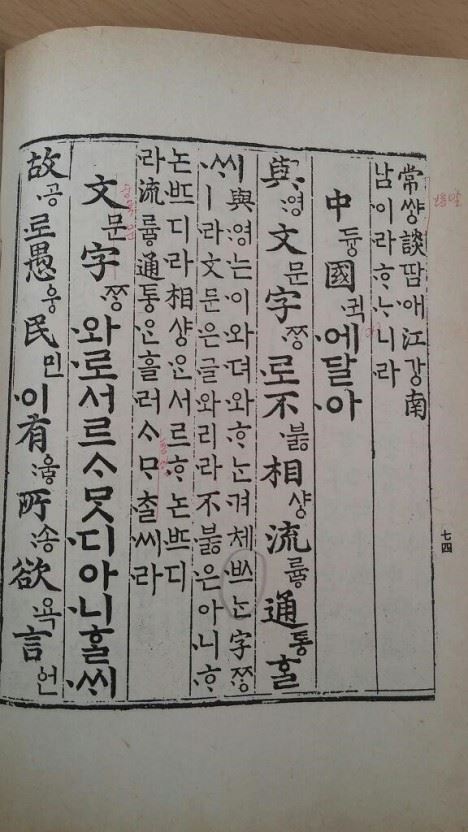 常썅談땀애江강南
남이라ᄒᆞᄂᆞ니라
中듕國귁에달아
與영文문字ᄍᆞᆼ로不부ᇙ相샹流류ᇢ通통ᄒᆞᆯ
ᄊᆡ與영는이와뎌와ᄒᆞ는겨체ᄡᅳ는字ᄍᆞᆼ
ㅣ라文문은글와리라不부ᇙ은아니ᄒᆞ
논ᄠᅳ디라相샹ᄋᆞᆫ서르ᄒᆞ논ᄠᅳ디
라流류ᇢ通통ᄋᆞᆫ흘러ᄉᆞᄆᆞᄎᆞᆯ씨라
文문字ᄍᆞᆼ와로서르ᄉᆞᄆᆞᆺ디아니ᄒᆞᆯᄊᆡ
故공로愚웅民민이有우ᇢ所송欲욕言언
七四
보통말